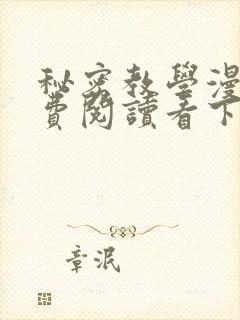 秘密教學漫
費閱讀看下
章泯